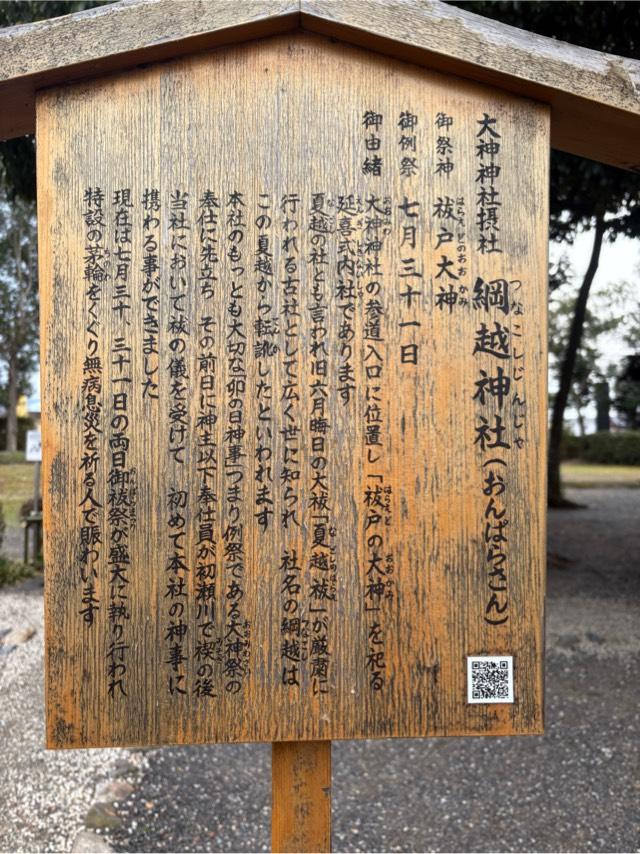 大神神社摂社　綱越神社(おんぱらさん)
つなこしじんじゃ
御祭神　祓戸大神
はらえどのおおかみ
御例祭　七月三十一日
御由緒　大神神社の参道入口に位置し「祓戸の大神」を祀る
延喜式内社であります
夏越の社とも言われ旧六月晦日の大祓「夏越祓」が厳粛に
行われる古社として広く世に知られ　社名の綱越は
この夏越から転訛したといわれます
本社のもっとも大切な「卯の日神事」つまり例祭である大神祭の
奉仕に先立ち　その前日に神主以下奉仕員が初瀬川で禊の後
当社において祓の儀を受けて　初めて本社の神事に
携わる事ができました
現在は七月三十、三十一日の両日御祓祭が盛大に執り行われ
特設の茅輪をくぐり無病息災を祈る人で賑わいます